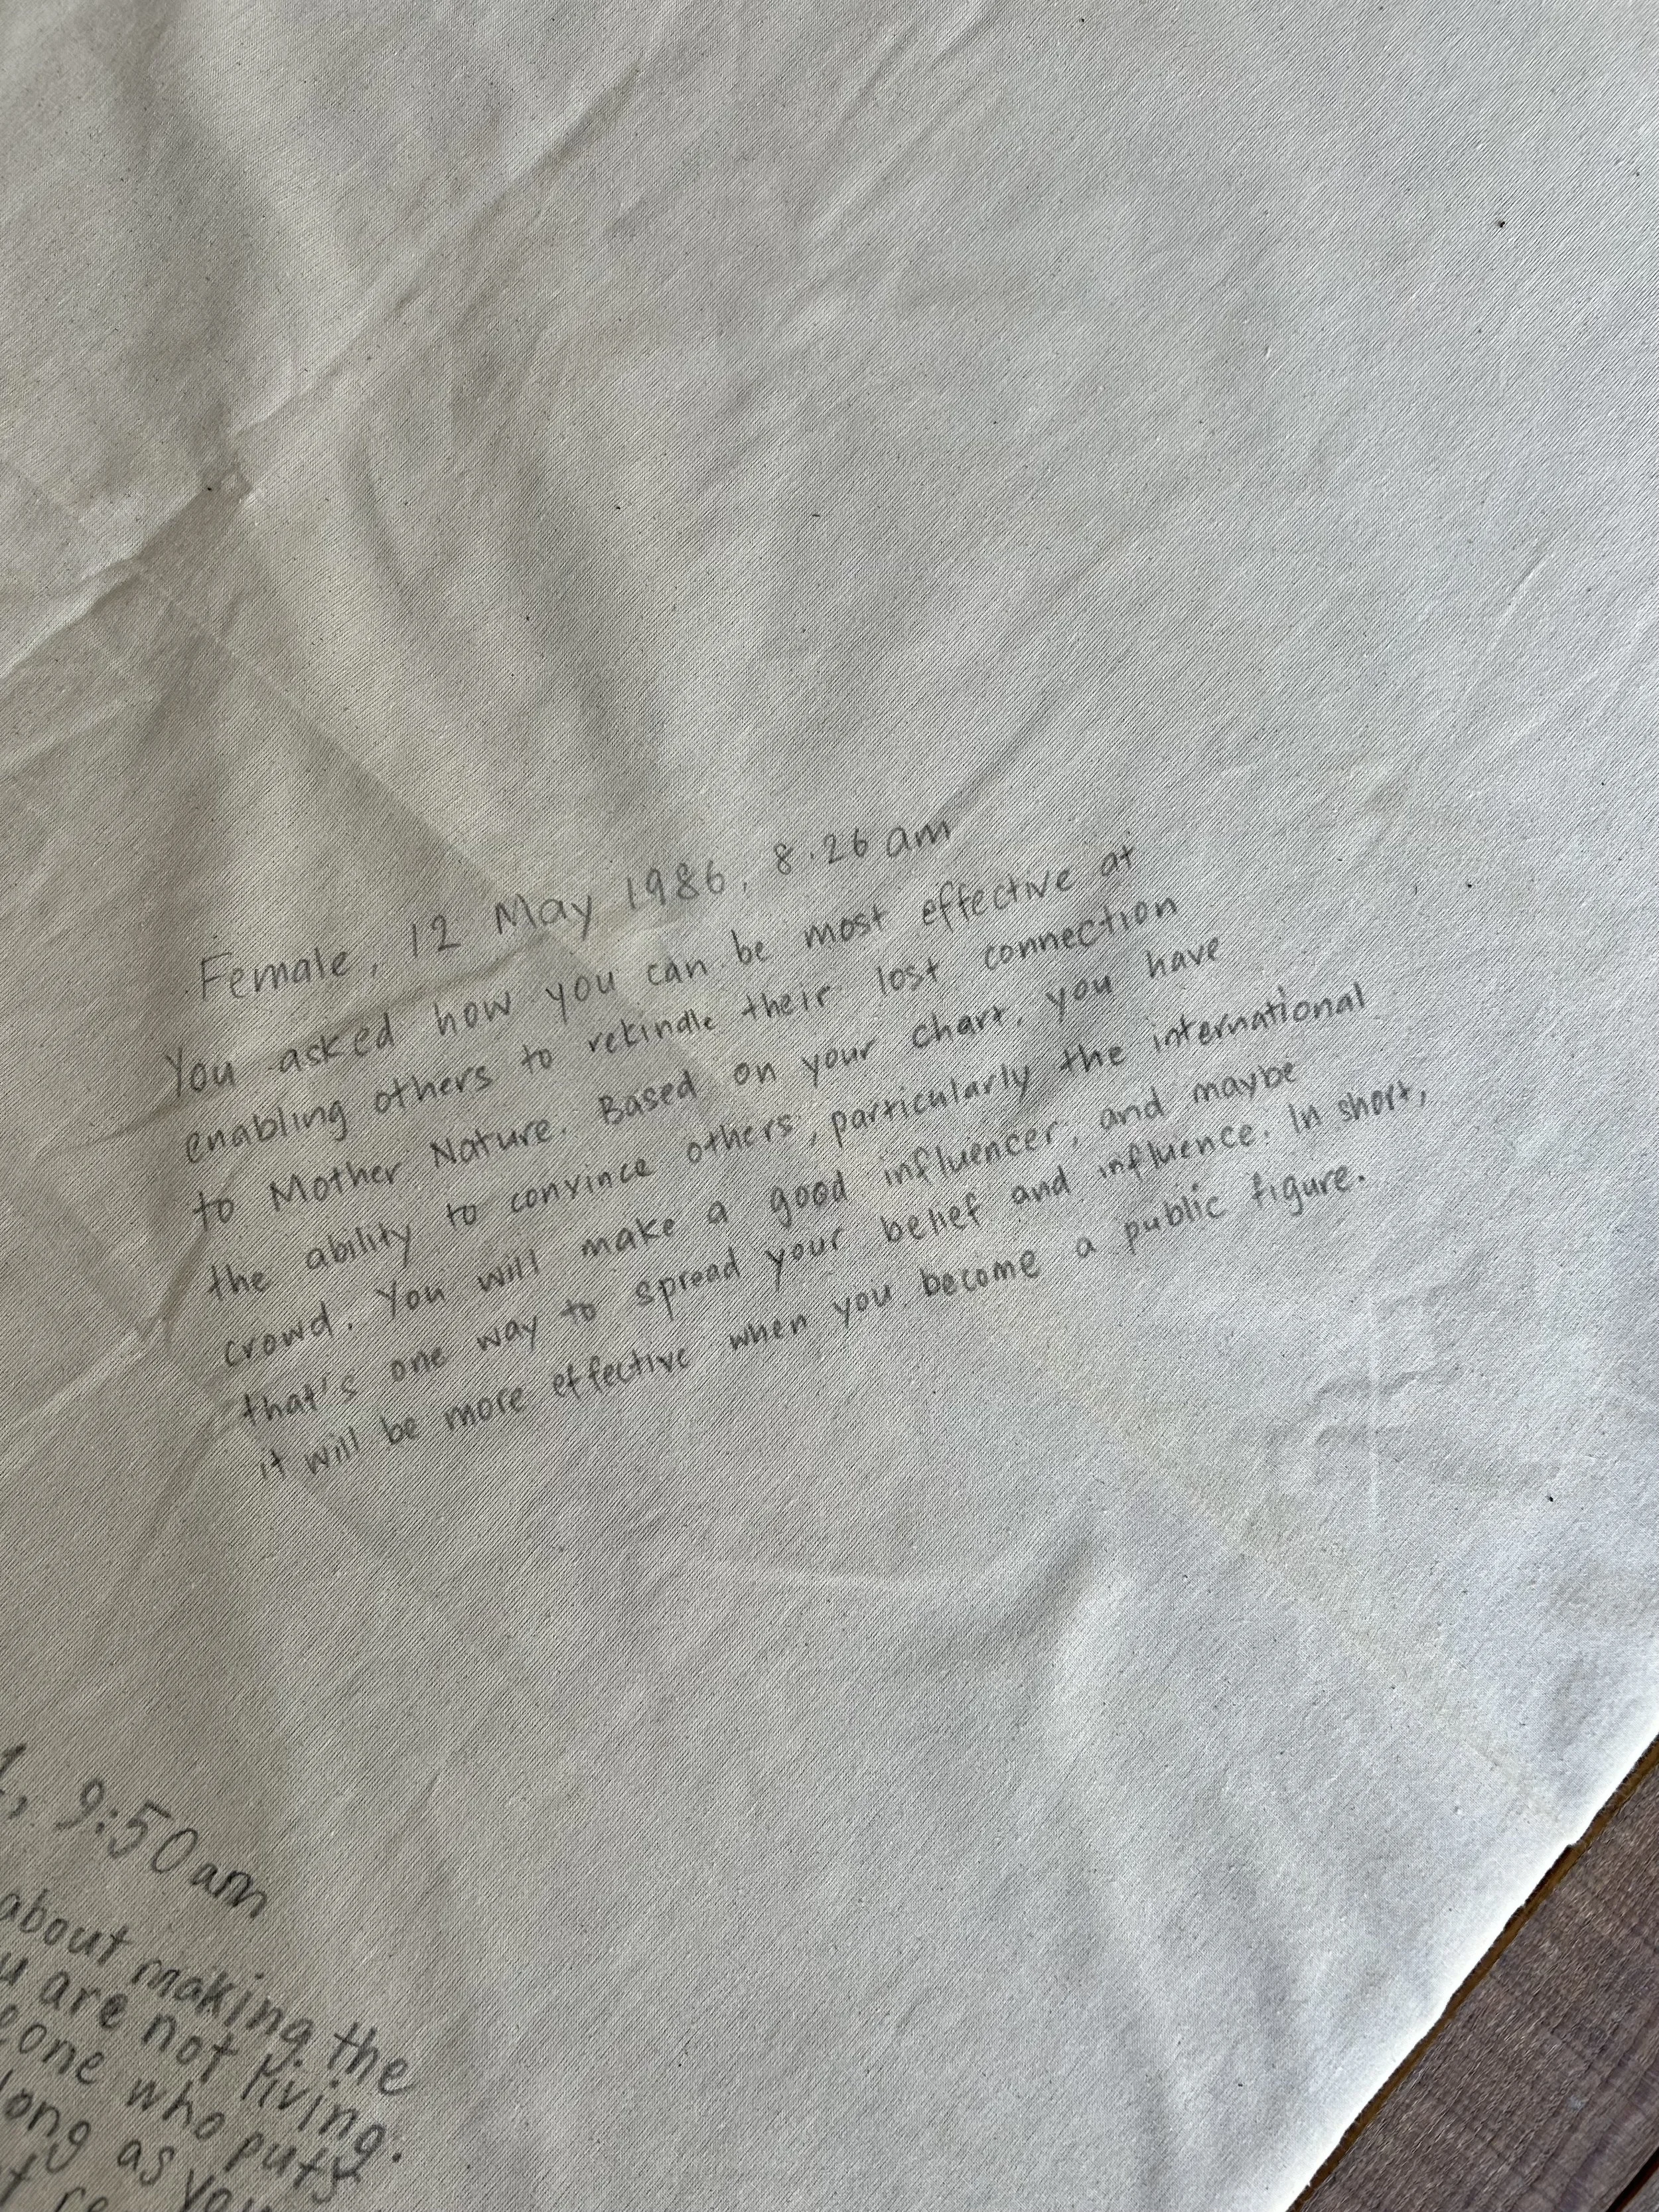 Female, 12 May 1986, 8.26 am
You asked how you can be most effective at
enabling others to rekindle their lost connection
to Mother Nature. Based on your chart, you have
the ability to convince others, particularly the international
crowd. You will make a good influencer, and maybe
that's one way to spread your belief and influence. In short,
it will be more effective when you become a public figure.
, 9:50 am
about making the
are not living.
who puts
long as you